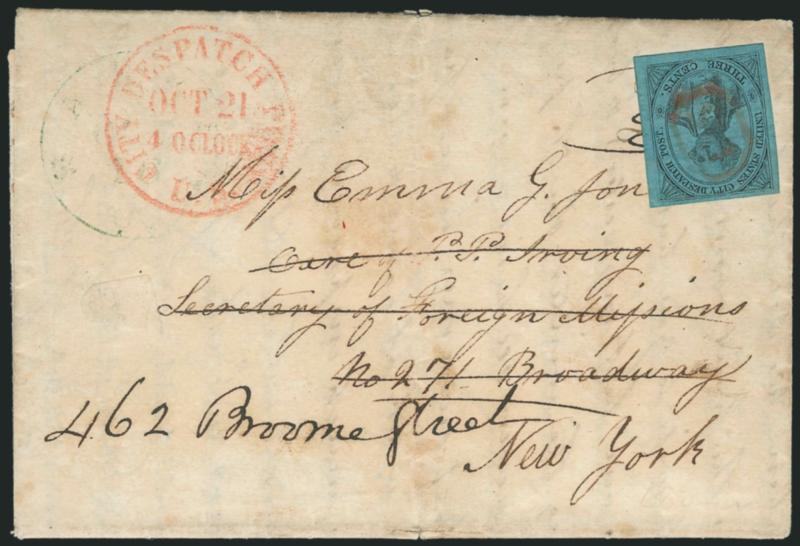 CITY DESPATCH
OCT 21
4 O'CLOCK
THREE CENTS
UNITED STATES CITY DESPATCH POST
Miss Emma G. Jon
Care of P.P. Irving
Secretary of Foreign Missions
No 271 Broadway
462 Broome Street
New York